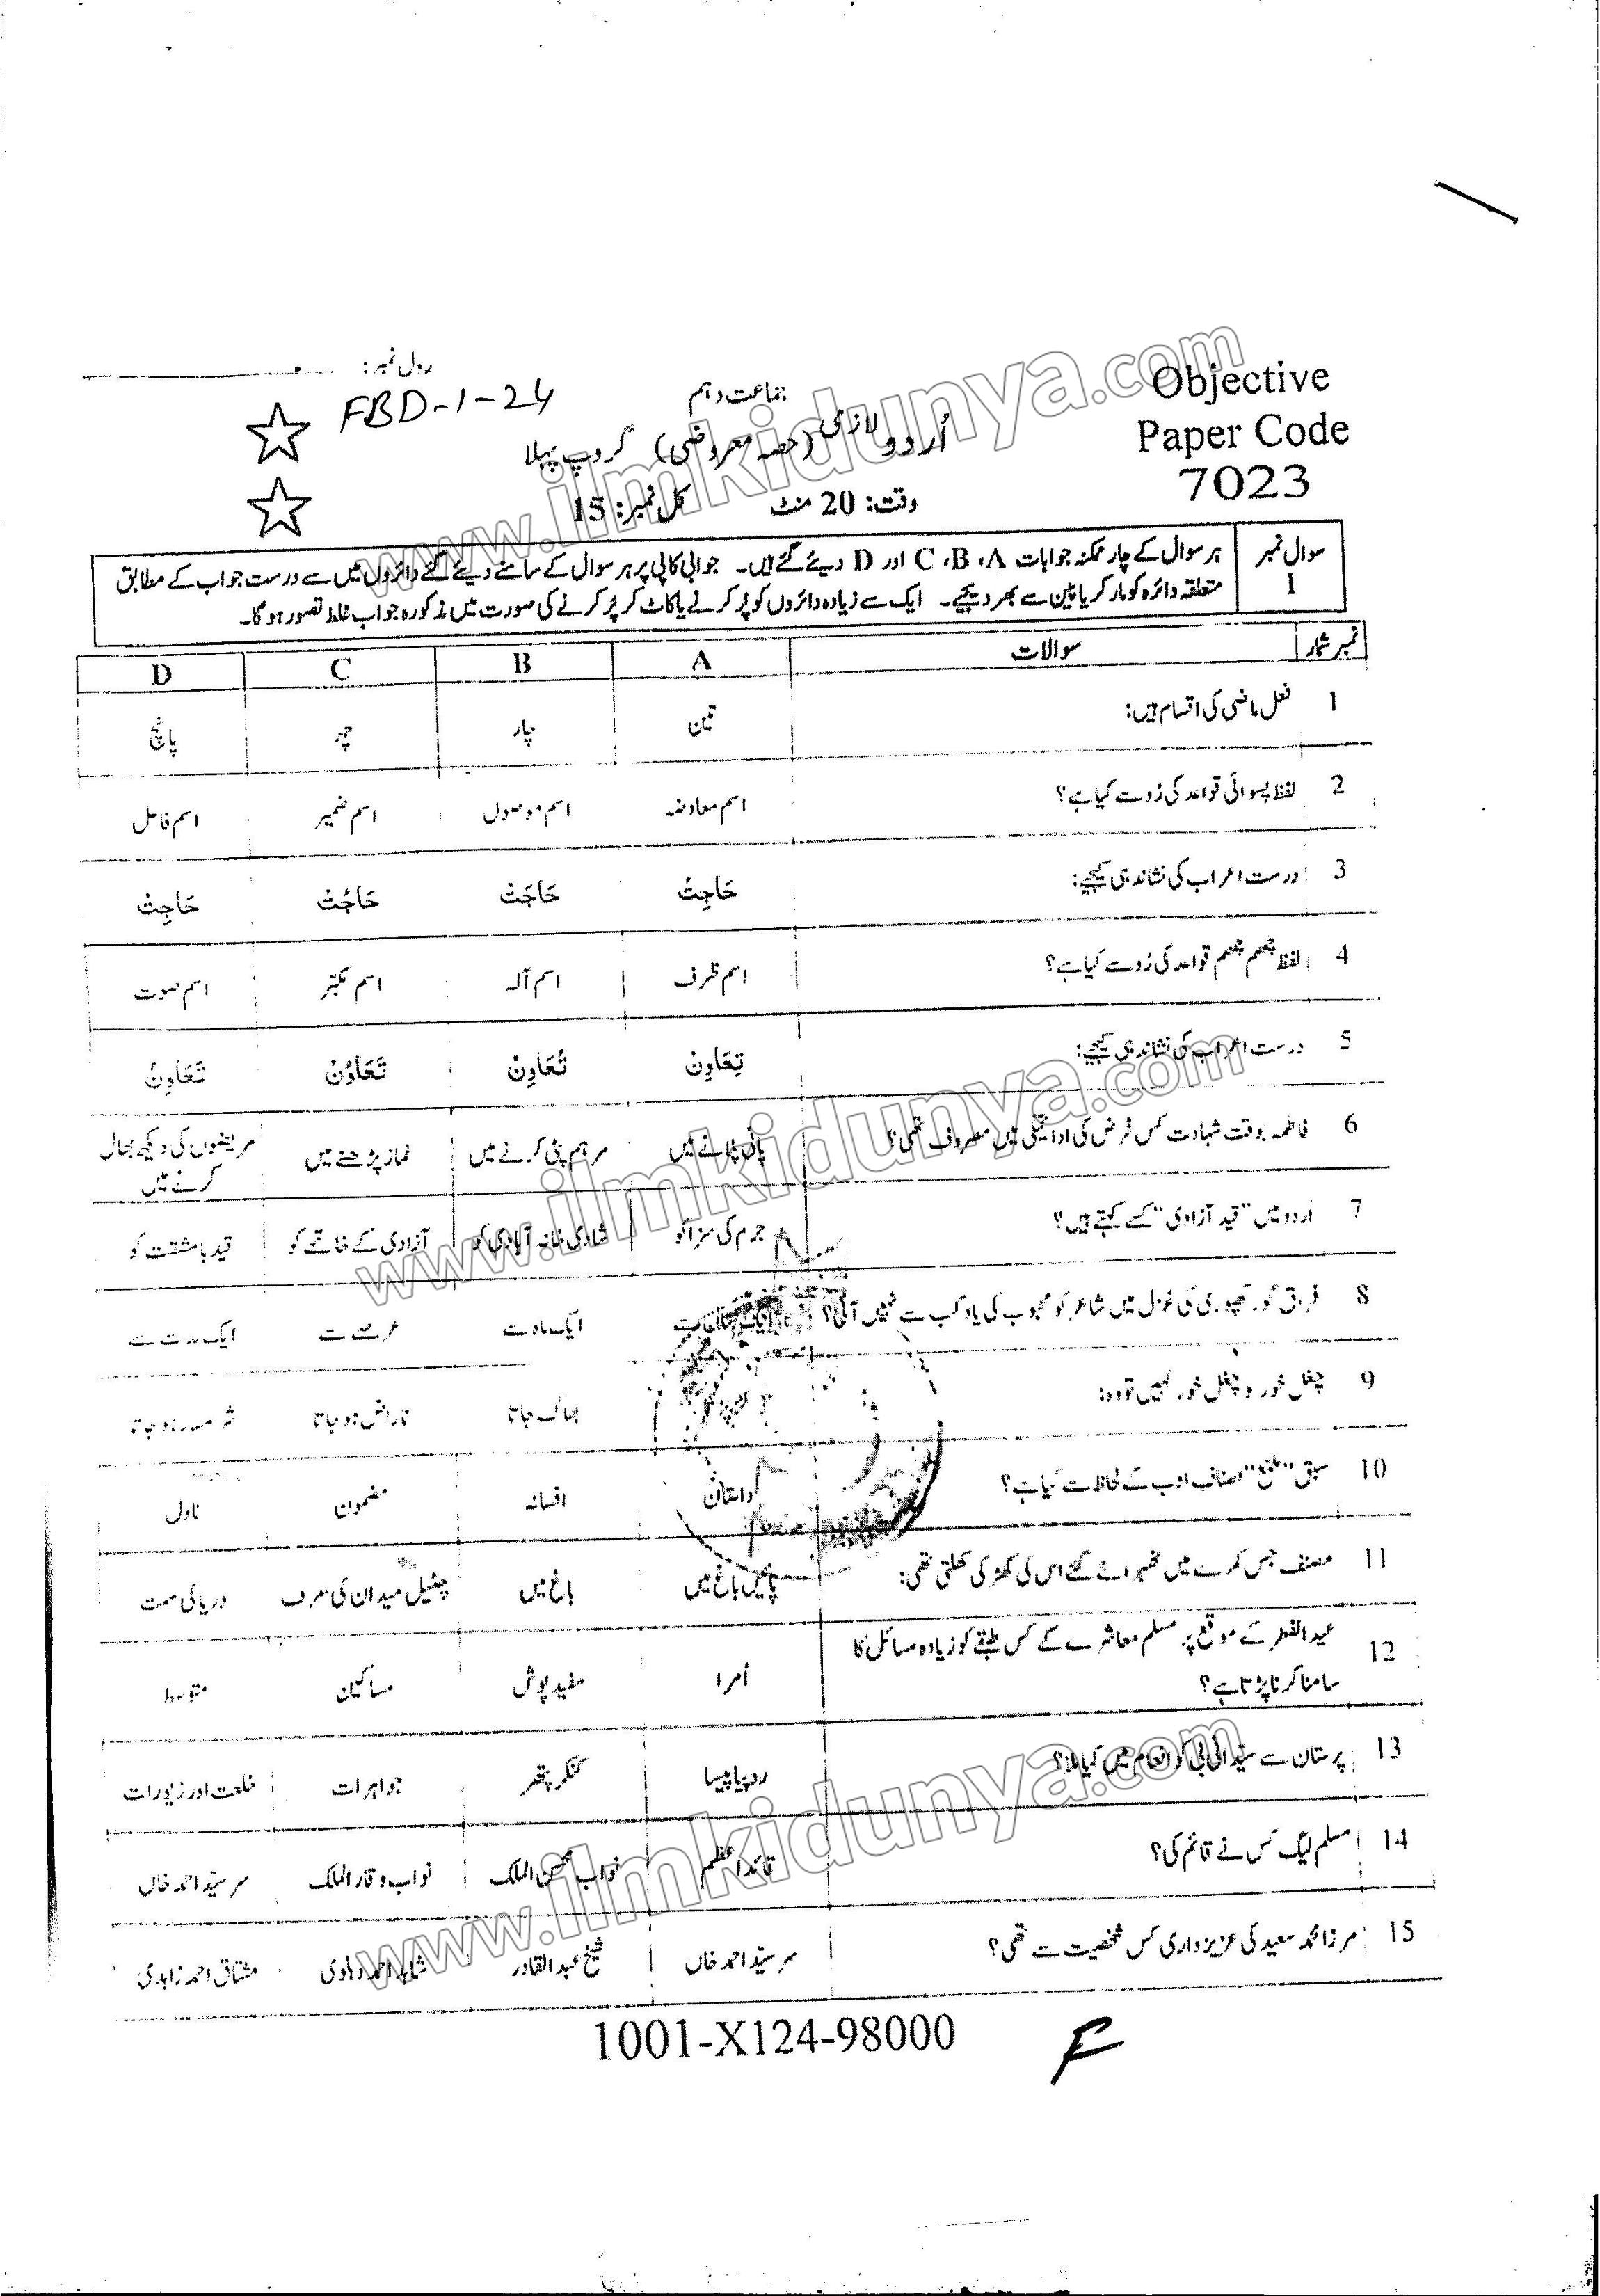 رول نمبر:
FBD-1-24
جماعت دہم
Objective
Paper Code
7023
اُردو لازمی (حصہ معروضی) گروپ پہلا
وقت: 20 منٹ کل نمبر: 15
سوال نمبر 1
ہر سوال کے چار ممکنہ جوابات A، B، C اور D دیئے گئے ہیں۔ جوابی کاپی پر ہر سوال کے سامنے دیئے گئے دائروں میں سے درست جواب کے مطابق
متعلقہ دائرہ کو مارکر یا پین سے بھر دیجیے۔ ایک سے زیادہ دائروں کو پُر کرنے یا کاٹ کر پُر کرنے کی صورت میں مذکورہ جواب غلط تصور ہو گا۔
نمبر شمار سوالات A B C D
1 فعل ماضی کی اقسام ہیں: تین چار چھ پانچ
2 لفظ پسوائی قواعد کی رُو سے کیا ہے؟ اسم معاوضہ اسم موصول اسم ضمیر اسم فاعل
3 درست اعراب کی نشاندہی کیجیے: حَاجِتُ حَاجَتْ حَاجُتْ حَاجِتْ
4 لفظ چھم چھم قواعد کی رُو سے کیا ہے؟ اسم ظرف اسم آلہ اسم مکبّر اسم صوت
5 درست اعراب کی نشاندہی کیجیے: تِعَاوِنْ تُعَاوِنْ تَعَاوُنْ تَعَاوِنُ
6 فاطمہ بوقت شہادت کس فرض کی ادائیگی میں مصروف تھی؟ پانی پلانے میں مرہم پٹی کرنے میں نماز پڑھنے میں مریضوں کی دیکھ بھال
کرنے میں
7 اردو میں "قید آزادی" کسے کہتے ہیں؟ جرم کی سزا کو شادی خانہ آبادی کو آزادی کے خاتمے کو قید با مشقت کو
8 فراق گورکھپوری کی غزل میں شاعر کو محبوب کی یاد کب سے نہیں آئی؟ ایک ماہ سے عرصے سے ایک مدت سے
9 چغل خور کو چغل خور کہیں تو وہ: بھاگ جاتا ناراض ہو جاتا شرمندہ ہو جاتا
10 سبق "ملمع" اصناف ادب کے لحاظ سے کیا ہے؟ داستان افسانہ مضمون ناول
11 مصنف جس کمرے میں ٹھہرائے گئے اس کی کھڑکی کھلتی تھی: پائیں باغ میں باغ میں چٹیل میدان کی طرف دریا کی سمت
12 عید الفطر کے موقع پر مسلم معاشرے کے کس طبقے کو زیادہ مسائل کا
سامنا کرنا پڑتا ہے؟ اُمرا سفید پوش مساکین متوسط
13 پرستان سے سیّدانی بی کو انعام میں کیا ملا؟ روپیا پیسا کنکر پتھر جواہرات خلعت اور زیورات
14 مسلم لیگ کس نے قائم کی؟ قائد اعظم نواب محسن الملک نواب وقار الملک سر سیّد احمد خاں
15 مرزا محمد سعید کی عزیز داری کس شخصیت سے تھی؟ سر سیّد احمد خاں شیخ عبد القادر شاہد احمد دہلوی مشتاق احمد زاہدی
1001-X124-98000
F
www.ilmkidunya.com
www.ilmkidunya.com
www.ilmkidunya.com